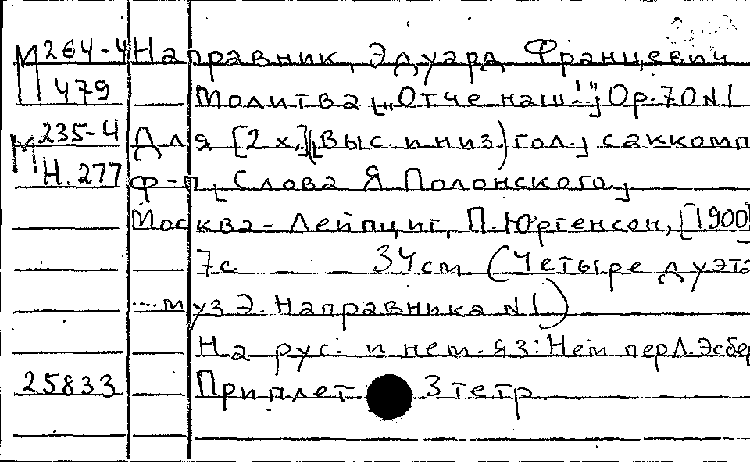 М 264-4 Направник, Эдуард Францевич
479 Молитва [„Отче наш!"] Op. 70 N1
М 235-4 Для [2 х.] (выс и низ) гол., с аккомп
Н. 277 ф-п. Слова Я Полонского,
Москва - Лейпциг, П. Юргенсон, [1900]
7с 34 см (Четыре дуэта
... муз Э. Направника N1)
На рус. и нем. яз: Нем пер Л. Эсбер
25833 Приплет 3 тетр